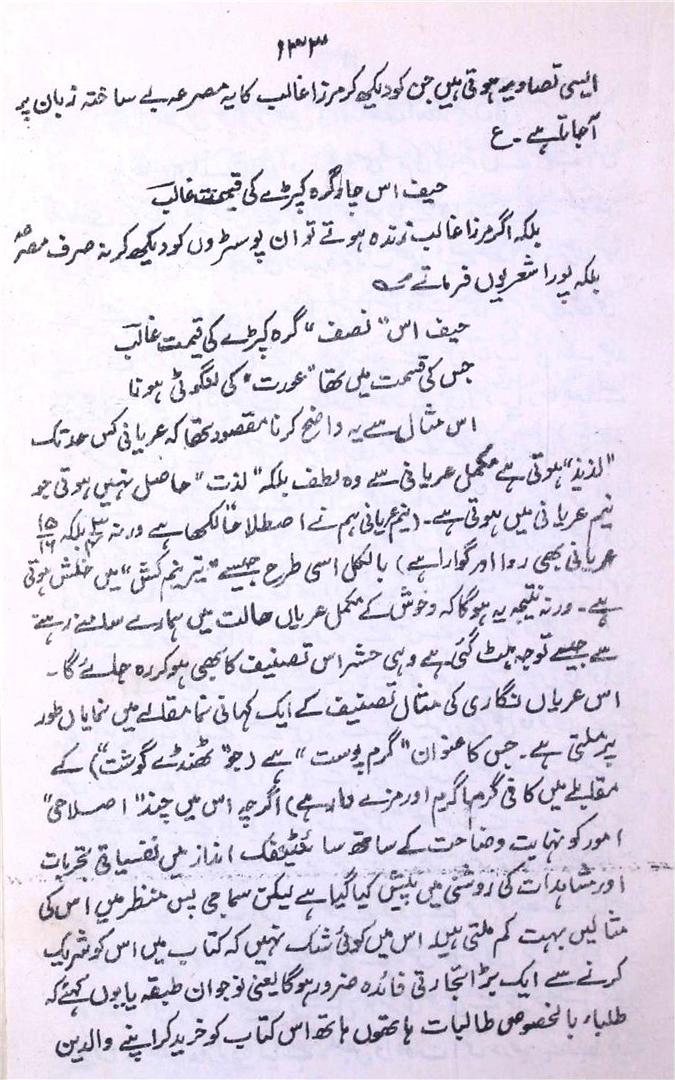 ۱۳۳
ایسی تصاویر ہوتی ہیں جن کو دیکھ کر مرزا غالب کا یہ مصرعہ بے ساختہ زبان پر
آجاتا ہے ۔ ع
حیف اس چار گرہ کپڑے کی قیمت غالب
بلکہ اگر مرزا غالب زندہ ہوتے تو ان پوسٹروں کو دیکھ کر نہ صرف مصرعہ
بلکہ پورا شعر یوں فرماتے ؎
حیف اس "نصف" گرہ کپڑے کی قیمت غالب
جس کی قسمت میں تھا "عورت" کی لنگوٹی ہونا
اس مثال سے یہ واضح کرنا مقصود تھا کہ عریانی کس حد تک
"لذیذ" ہوتی ہے مکمل عریانی سے وہ لطف بلکہ "لذت" حاصل نہیں ہوتی جو
نیم عریانی میں ہوتی ہے۔ (نیم عریانی ہم نے اصطلاحاً لکھا ہے ورنہ ۳/۴ بلکہ ۱۵/۱۶
عریانی بھی روا اور گوارا ہے) بالکل اسی طرح جیسے "تیر نیم کش" میں خلش ہوتی
ہے۔ ورنہ نتیجہ یہ ہوگا کہ وحوش کے مکمل عریاں حالت میں ہمارے سامنے رہنے
سے جیسے توجہ ہٹ گئی ہے وہی حشر اس تصنیف کا بھی ہو کر رہ جائے گا۔
اس عریاں نگاری کی مثال تصنیف کے ایک کہانی نما مقالے میں نمایاں طور
پر ملتی ہے۔ جس کا عنوان "گرم پوست" ہے (جو "ٹھنڈے گوشت") کے
مقابلے میں کافی گرما گرم اور مزے دار ہے) اگرچہ اس میں چند "اصلاحی"
امور کو نہایت وضاحت کے ساتھ سائنٹیفک انداز میں نفسیاتی تجربات
اور مشاہدات کی روشنی میں پیش کیا گیا ہے لیکن سماجی پس منظر میں اس کی
مثالیں بہت کم ملتی ہیں۔ اس میں کوئی شک نہیں کہ کتاب میں اس کو شریک
کرنے سے ایک بڑا تجارتی فائدہ ضرور ہوگا یعنی نوجوان طبقہ یا یوں کہئے کہ
طلباء بالخصوص طالبات ہاتھوں ہاتھ اس کتاب کو خرید کر اپنے والدین